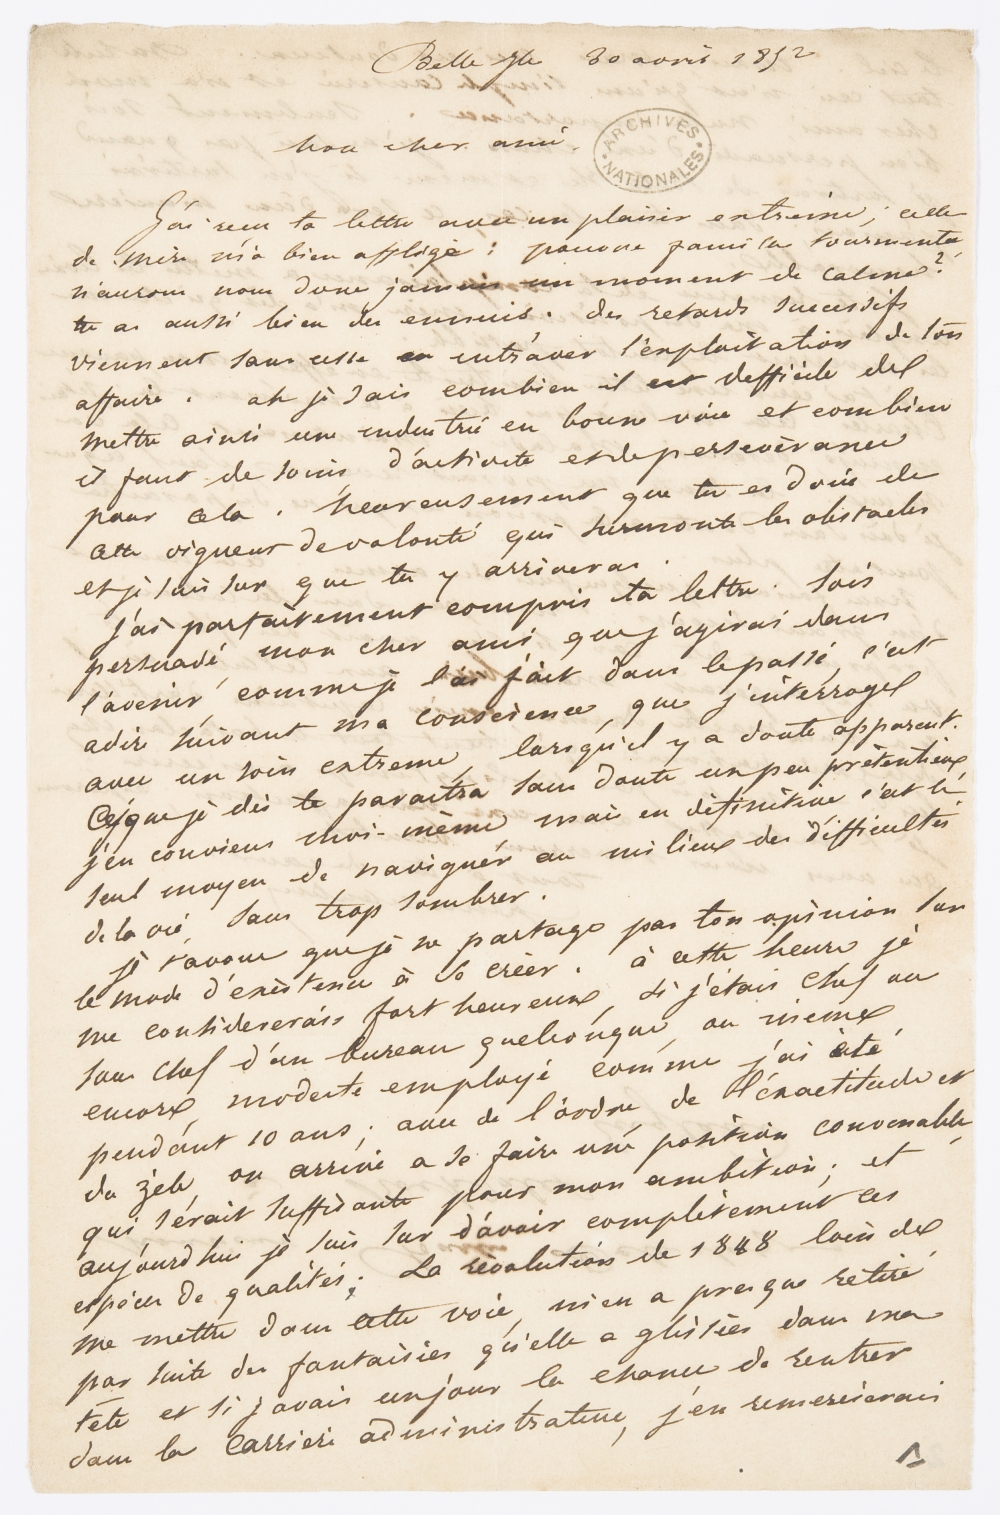 Belle Ile 30 avril 1852
ARCHIVES NATIONALES
Mon cher ami.
J'ai recu ta lettre avec un plaisir extreime; celle
de mère m'a bien affligé: pauvre famille tourmentée
n'aurons nous donc jamais un moment de calme?
tu as aussi bien des ennuis. des retards successifs
viennent sans cesse entraver l'exploitation de ton
affaire. ah je sais combien il est difficile de
mettre ainsi une industrie en bonne voie et combien
il faut de soins, d'activité et de persévérance
pour cela. heureusement que tu es doué de
cette vigueur de volonté qui surmonte les obstacles
et je suis sur que tu y arriveras.
J'ai parfaitement compris ta lettre. Sois
persuadé, mon cher ami, que j'agirai dans
l'avenir comme je l'ai fait dans le passé, c'est
adire suivant ma conscience, que j'interroge
avec un soin extreme, lorsqu'il y a doute apparent.
Ce que je dis te paraitra sans doute un peu prétentieux,
j'en conviens moi-même mais en définitive c'est le
seul moyen de naviguer au milieu des difficultés
de la vie, sans trop sombrer.
je t'avoue que je ne partage pas ton opinion sur
le mode d'existence à se créer. à cette heure je
me considererais fort heureux, si j'étais chef ou
sous chef d'un bureau quelconque, ou mieux
encore, modeste employé comme j'ai été
pendant 10 ans; avec de l'ordre de l'éxactitude et
du zèle, on arrive a se faire une position convenable,
qui serait suffisante pour mon ambition; et
aujourd'hui je suis sur d'avoir complètement ces
espèces de qualités; La révolution de 1848 loin de
me mettre dans cette voie, m'en a presque retiré
par suite des fantaisies qu'elle a glissées dans ma
tête et si j'avais un jour la chance de rentrer
dans la carrière administrative, j'en remercierais